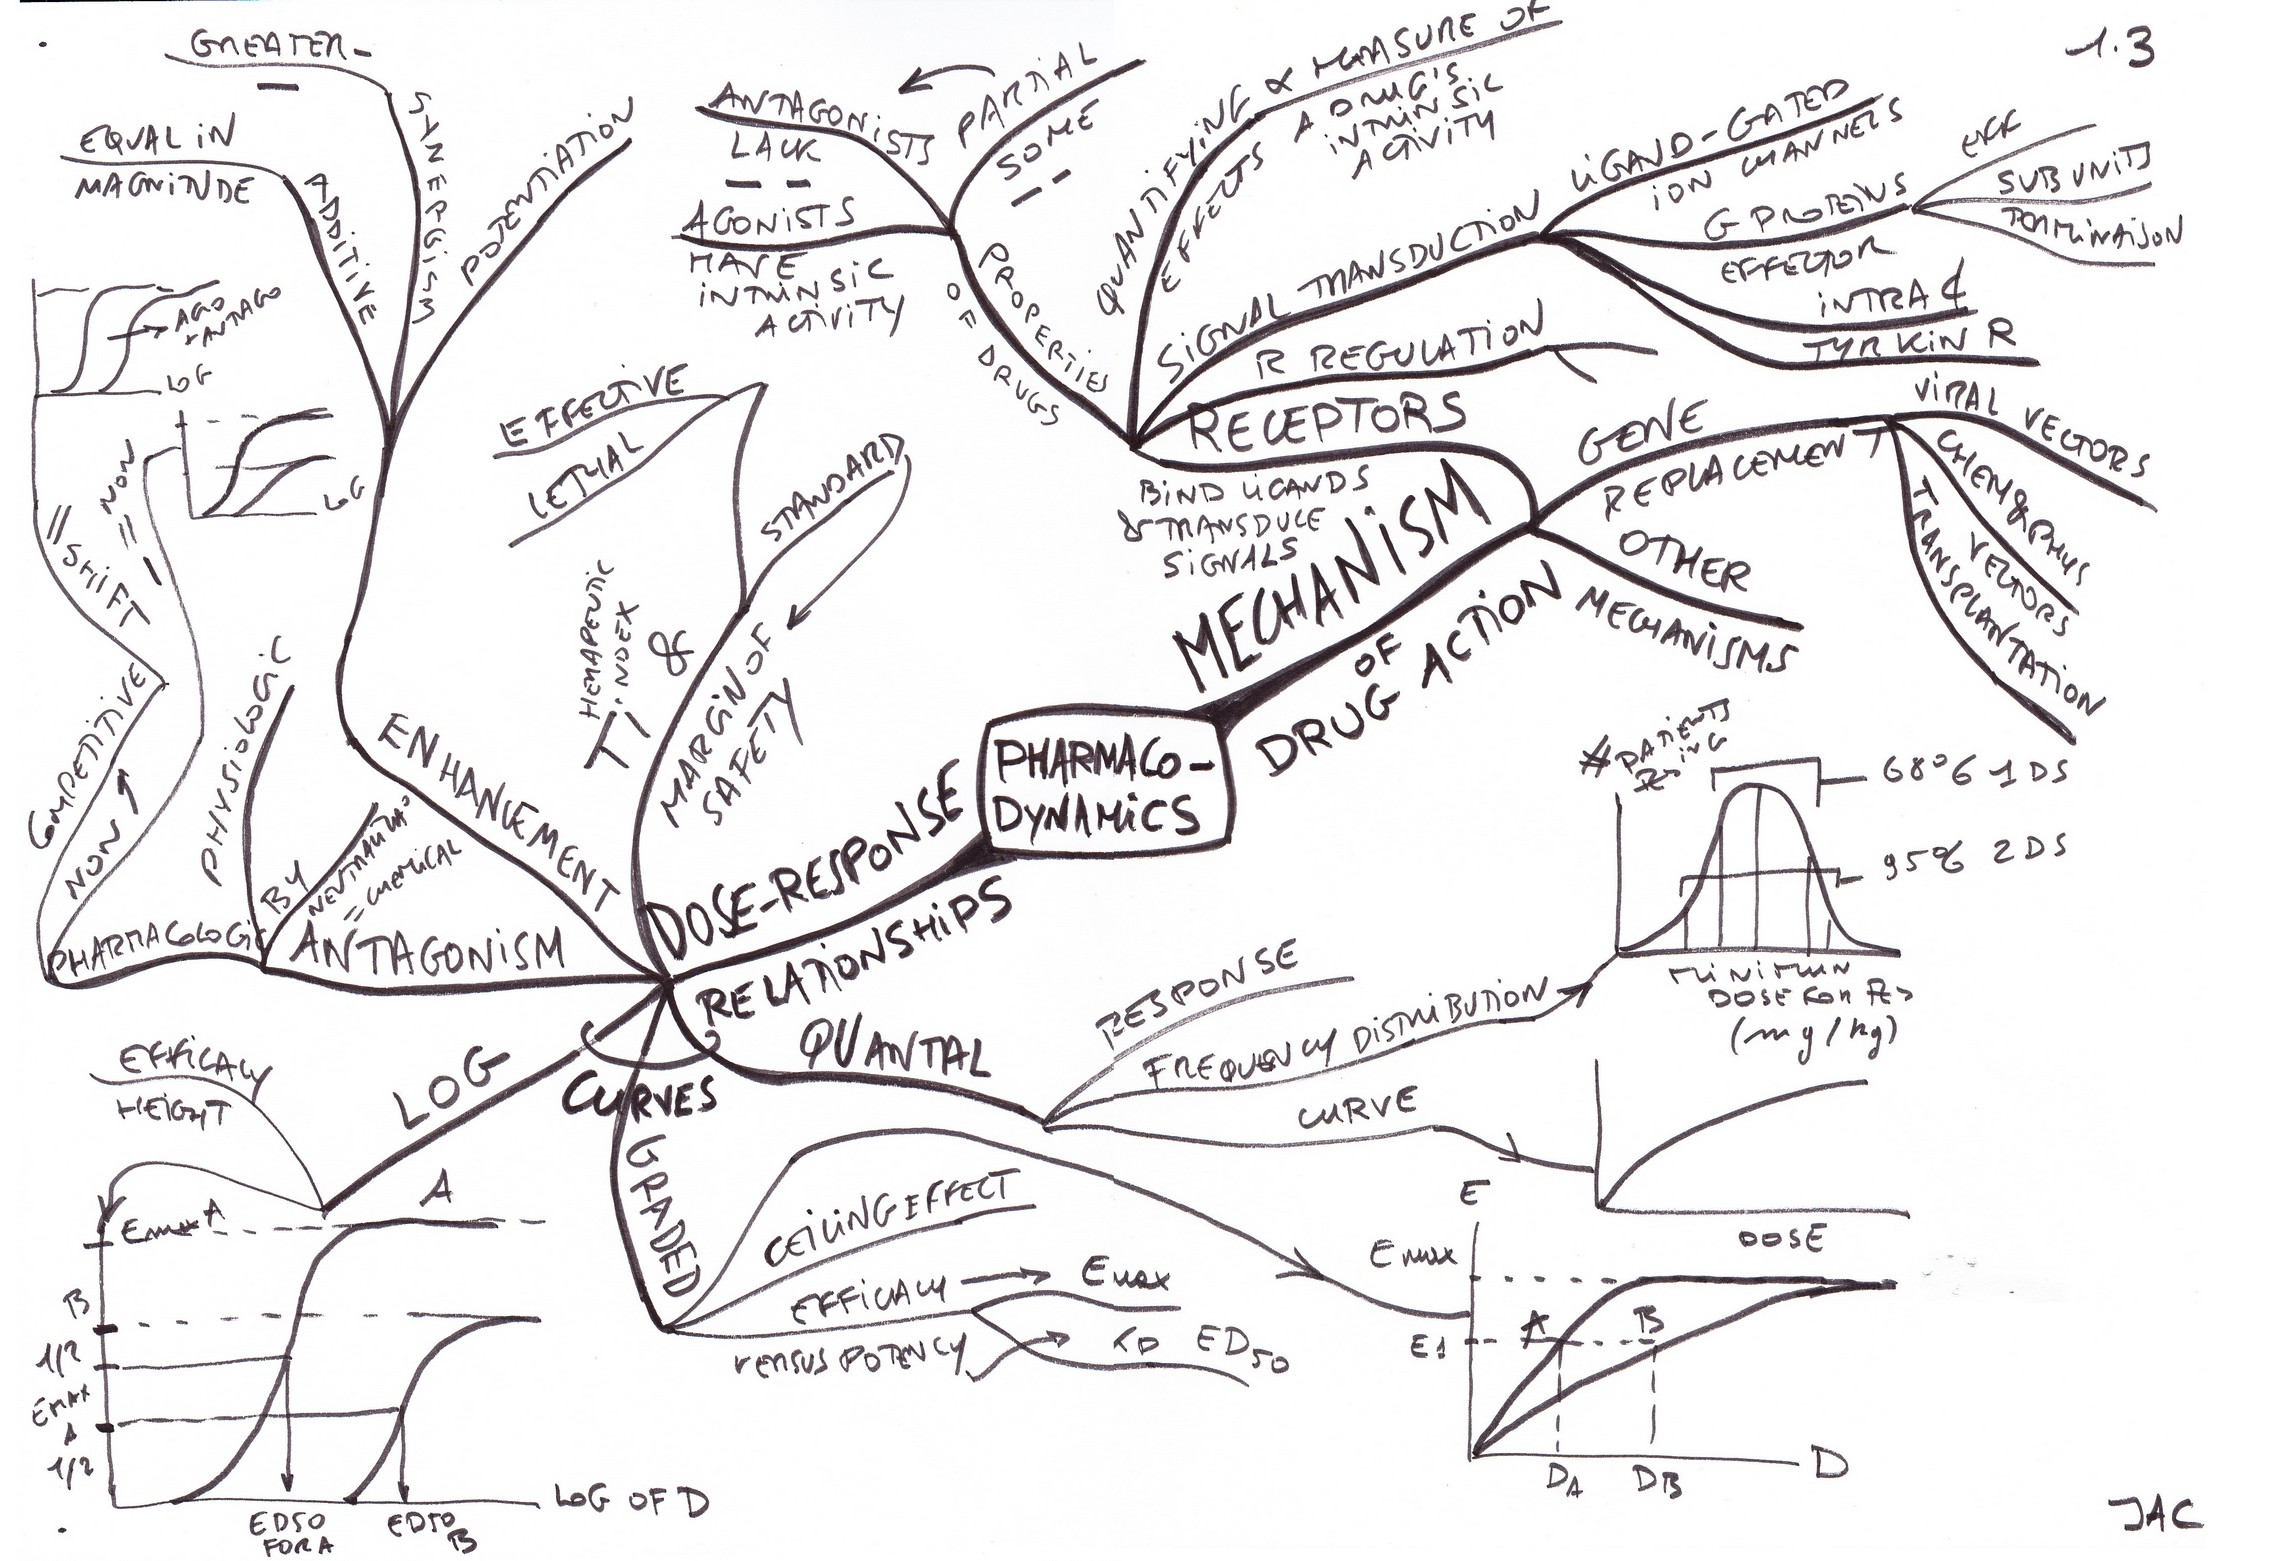 1.3
GREATER
SYNERGISM
EQUAL IN
MAGNITUDE
ADDITIVE
POTENTIATION
ANTAGONISTS
LACK
AGONISTS
HAVE
INTRINSIC
ACTIVITY
PARTIAL
SOME
PROPERTIES
OF DRUGS
QUANTIFYING
EFFECTS
∝ MEASURE OF
A DRUG'S
INTRINSIC
ACTIVITY
SIGNAL TRANSDUCTION
LIGAND-GATED
ION CHANNELS
G PROTEINS
EFFECTOR
EFF
SUBUNITS
TERMINAISON
INTRA ¢
TYR KIN R
R REGULATION
RECEPTORS
BIND LIGANDS
& TRANSDUCE
SIGNALS
GENE
REPLACEMENT
VIRAL VECTORS
CHEM & PHYS
VECTORS
TRANSPLANTATION
OTHER
MECHANISMS
MECHANISM
OF
DRUG ACTION
PHARMACO-
DYNAMICS
DOSE-RESPONSE
RELATIONSHIPS
EFFECTIVE
LETHAL
STANDARD
THERAPEUTIC
INDEX
&
MARGIN OF
SAFETY
ENHANCEMENT
AGO
+ ANTAGO
LOG
LOG
= NON
= SHIFT
COMPETITIVE
NON
PHYSIOLOGIC
BY
= CHEMICAL
PHARMACOLOGIC
ANTAGONISM
LOG
CURVES
GRADED
QUANTAL
EFFICACY
HEIGHT
A
Emax A
B
1/2
EMAX
A
1/2
ED50
FOR A
ED50
B
LOG OF D
CEILING EFFECT
EFFICACY → Emax
VERSUS POTENCY
ED50
RESPONSE
FREQUENCY DISTRIBUTION
CURVE
# PATIENTS
68% 1 DS
95% 2 DS
MINIMUM
DOSE FOR
(mg/kg)
DOSE
E
Emax
E1
A
B
DA
DB
D
JAC